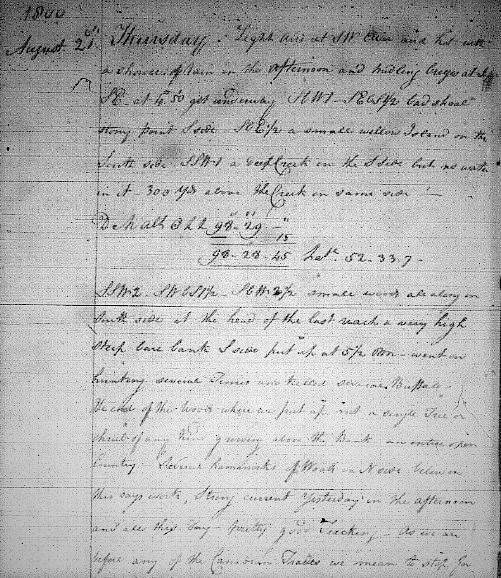 1800
August 21st Thursday. Light airs at SW Clear and hot with
a shower of rain in the afternoon and
SE. at 4.50 got underway SbW1 - SEbS1/2 bad shoal
stony point S side. SbE1/2 a small willow Island on the
South side. SSW1 a deep Creek in the S side but no water
in it. 300 Yds above the Creek on same side
98.. 29
15
98.. 28.. 45 Latde 52.. 33.. 7
SSW2. SWbS1/2. SbW2 1/2 small woods all along on
South side at the head of the last reach a very high
steep bare bank S side put up at 5 1/2 Mn - went a
hunting several Times and killed several Buffalo
the end of the Woods where we put up not a single Tree or
shrub of any kind growing above the Bank an entire open
Country. Several hammocks of Woods on N side below in
this days work, Strong current Yesterday in the afternoon
and all this day - pretty good Tracking. As we are
before any of the Canadian Traders we mean to stop for